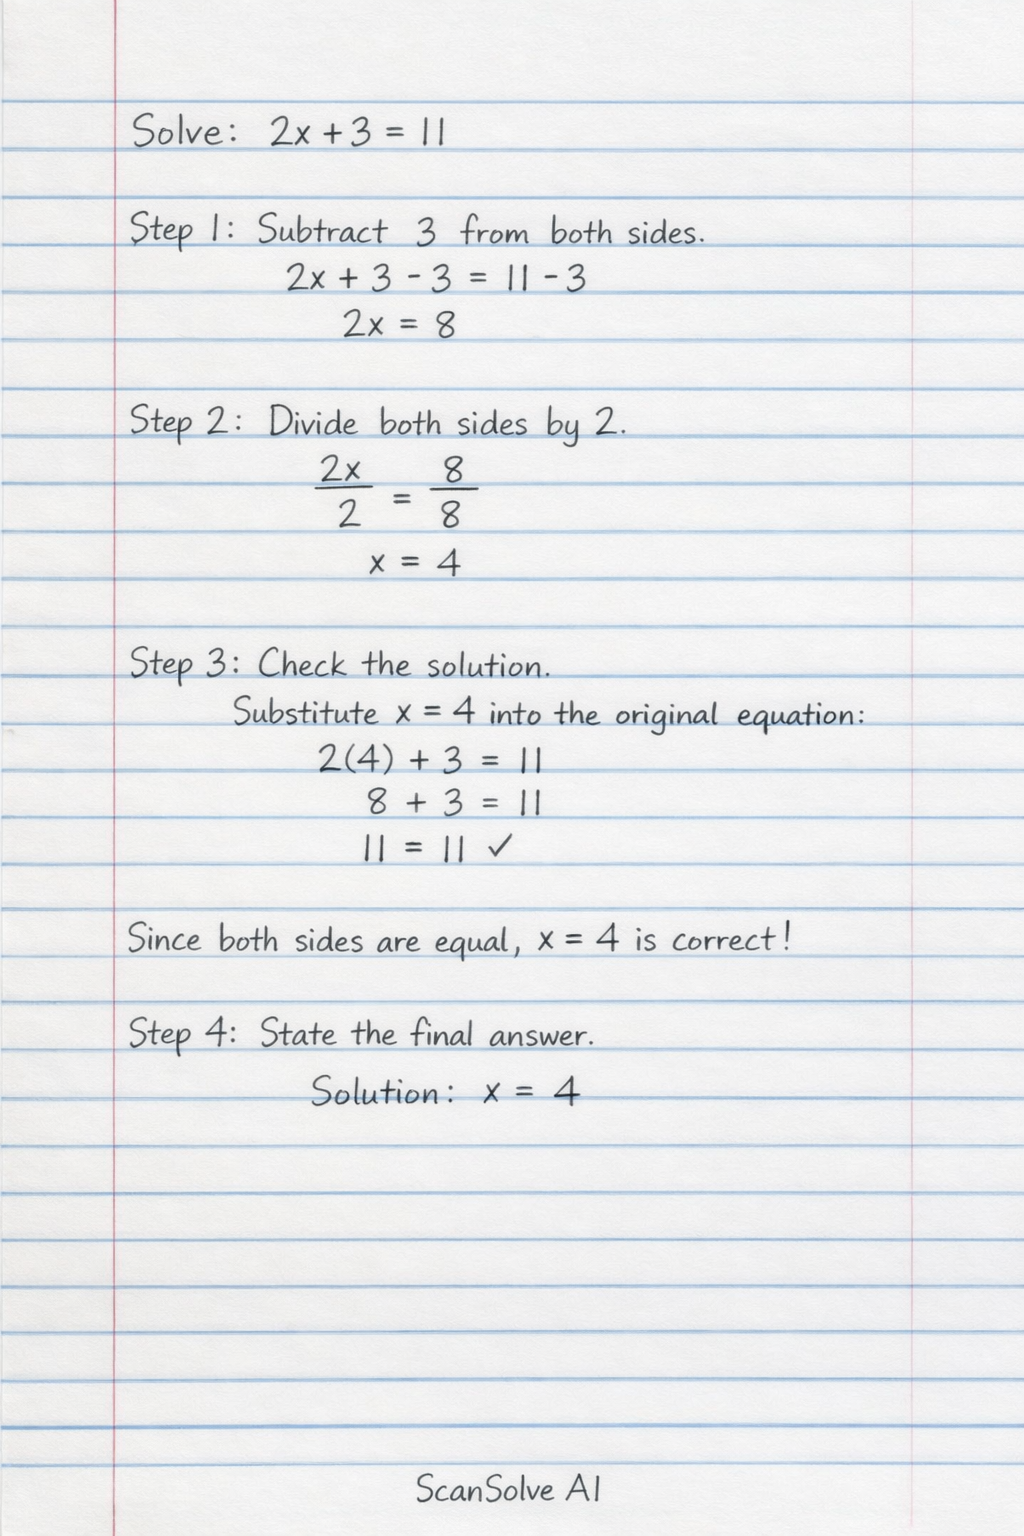 Solve: 2x + 3 = 11
Step 1: Subtract 3 from both sides.
2x + 3 - 3 = 11 - 3
2x = 8
Step 2: Divide both sides by 2.
2x/2 = 8/8
x = 4
Step 3: Check the solution.
Substitute x = 4 into the original equation:
2(4) + 3 = 11
8 + 3 = 11
11 = 11 ✓
Since both sides are equal, x = 4 is correct!
Step 4: State the final answer.
Solution: x = 4
ScanSolve AI